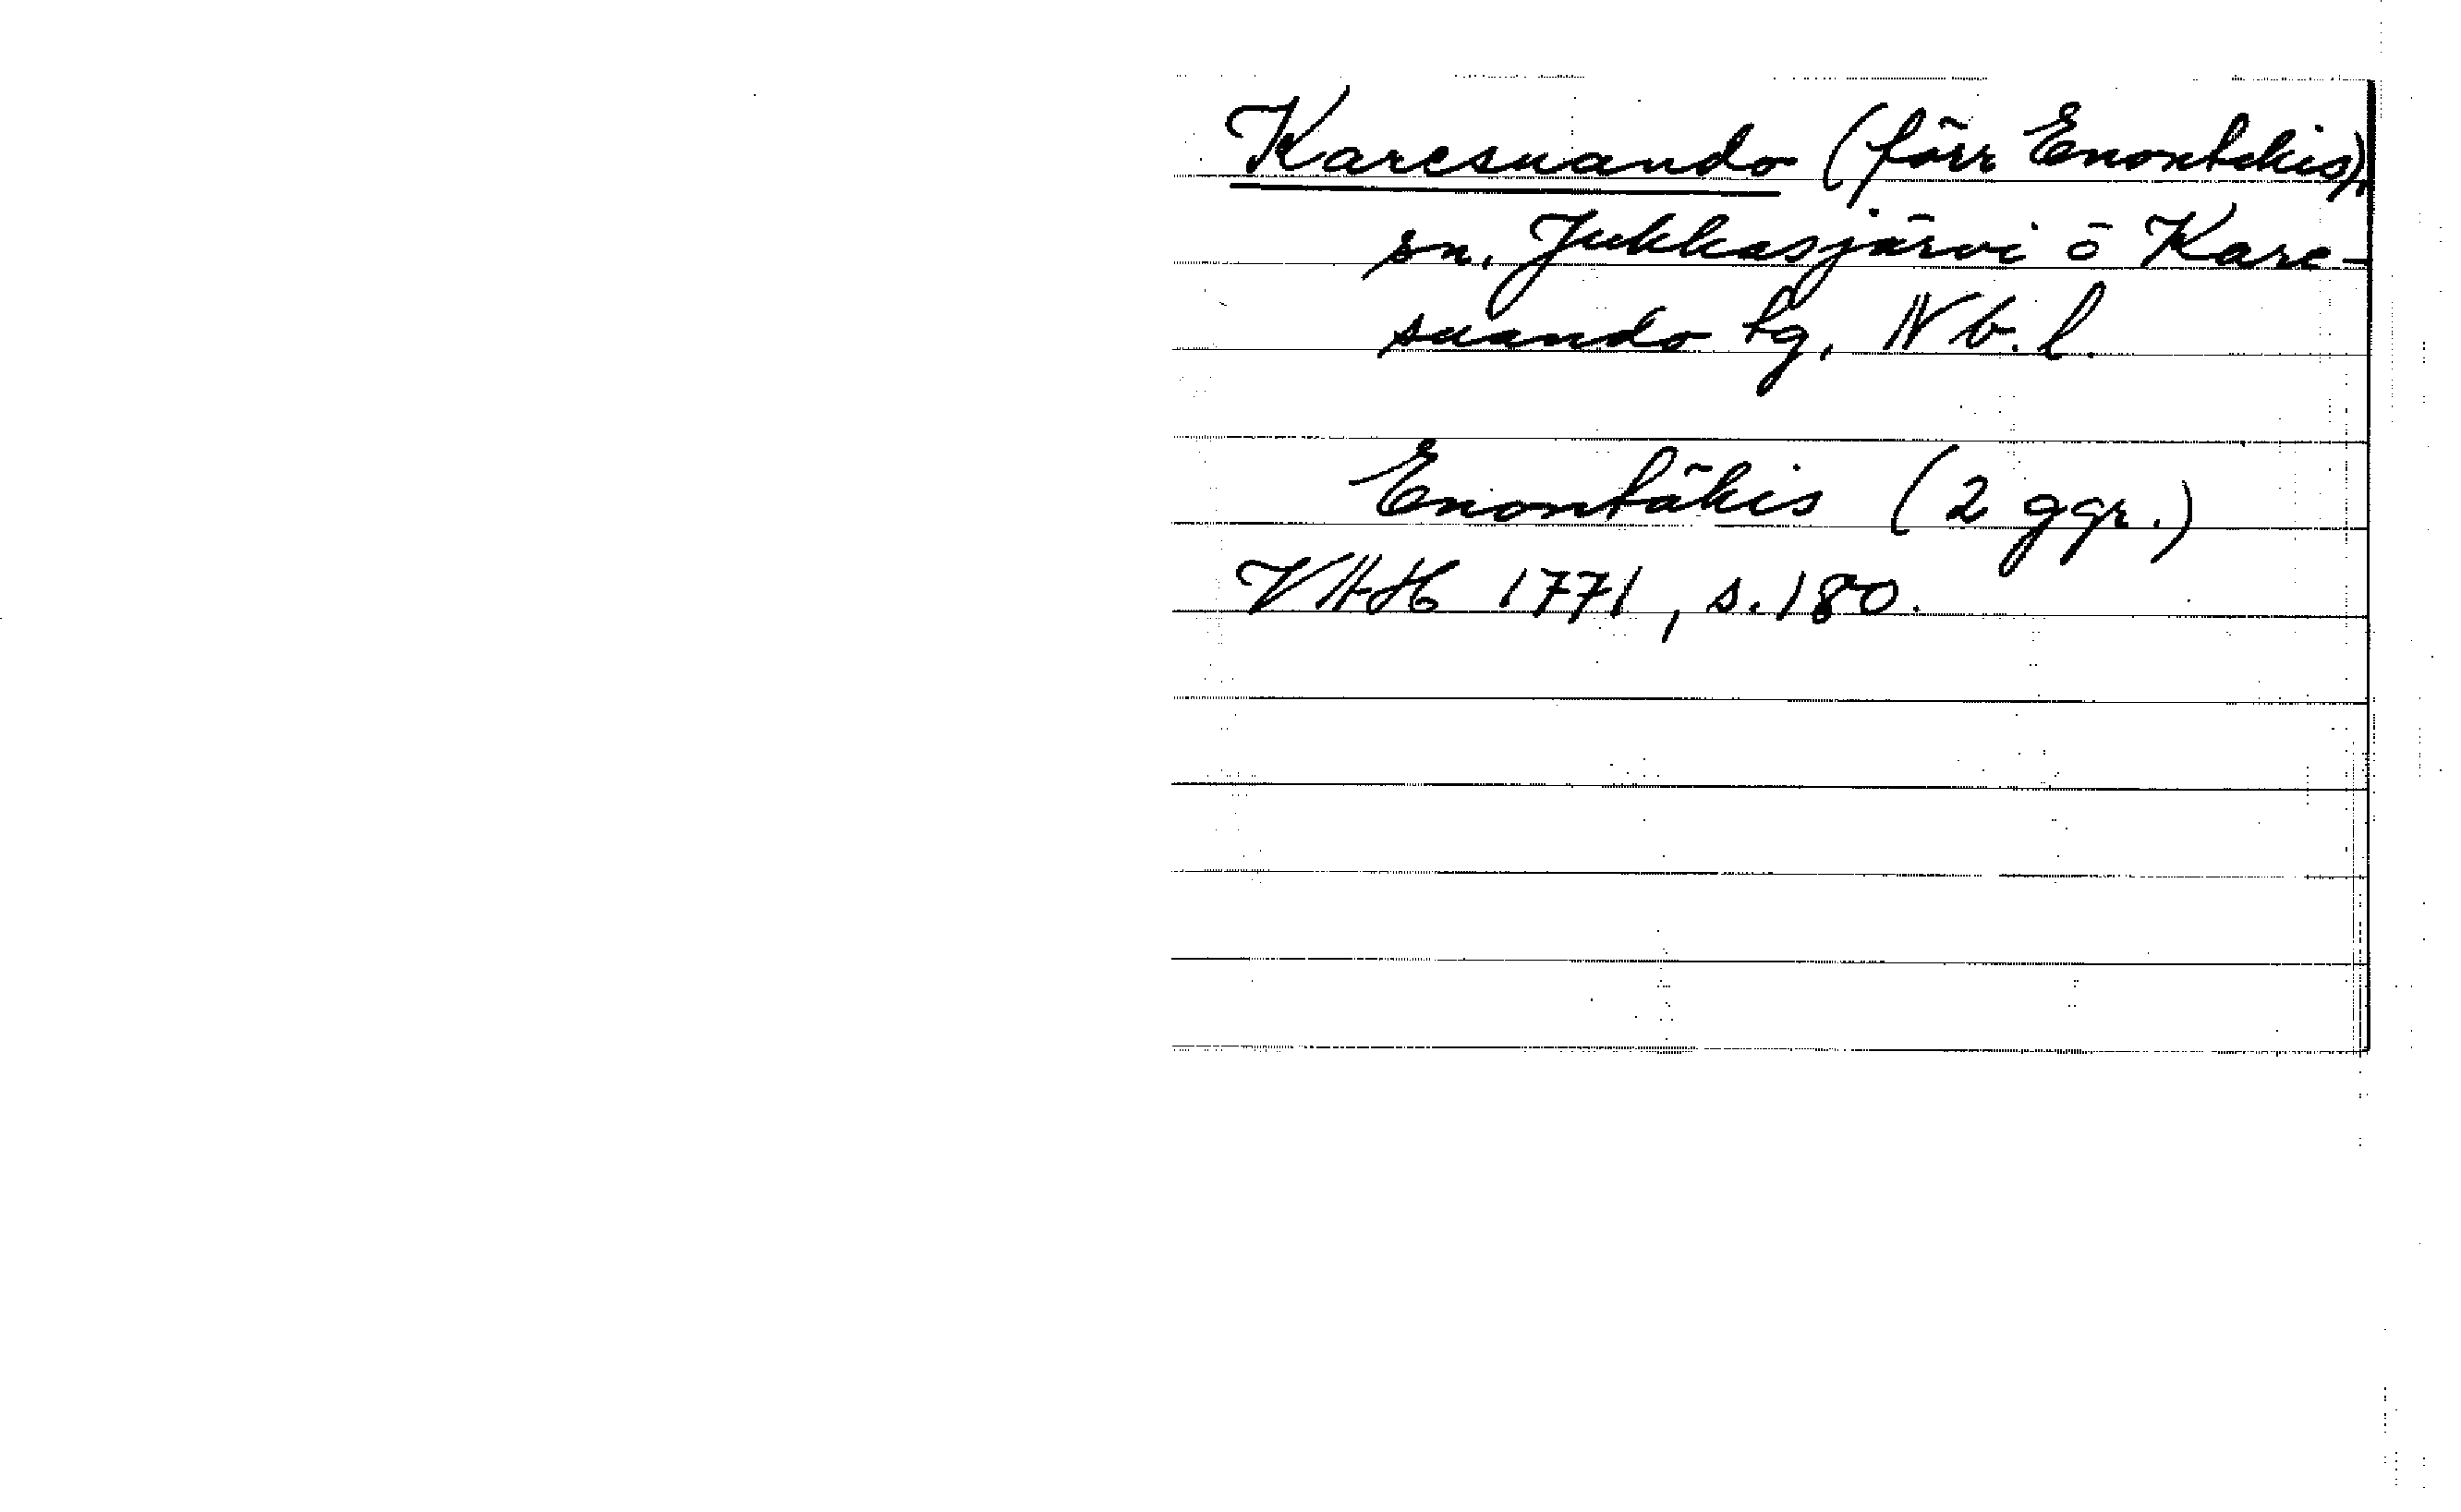 Karesuando (förr Enontekis),
sn, Jukkasjärvi o Kare-
suando tg, Nb. l.
Enontäkis (2 ggr.)
VHAH 1771, s. 180.